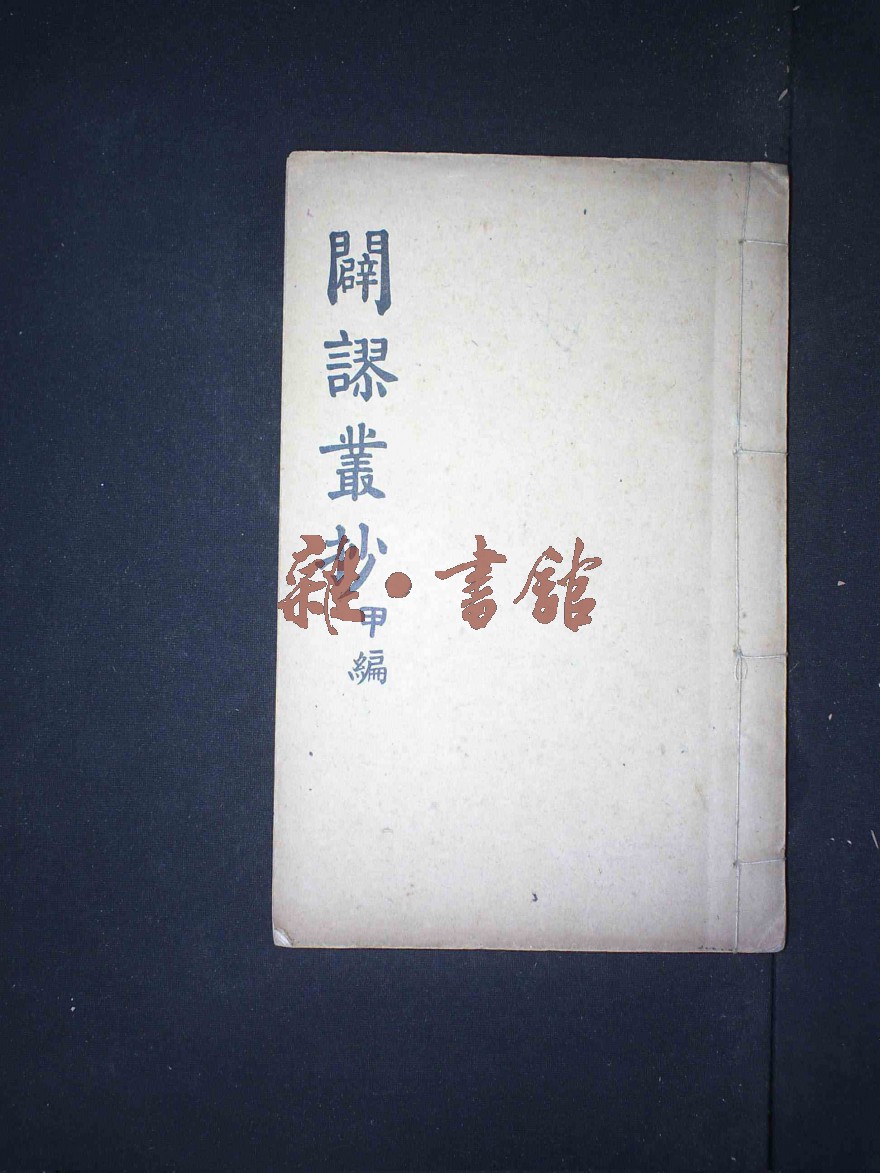 闢謬叢抄
甲編
雜·書館